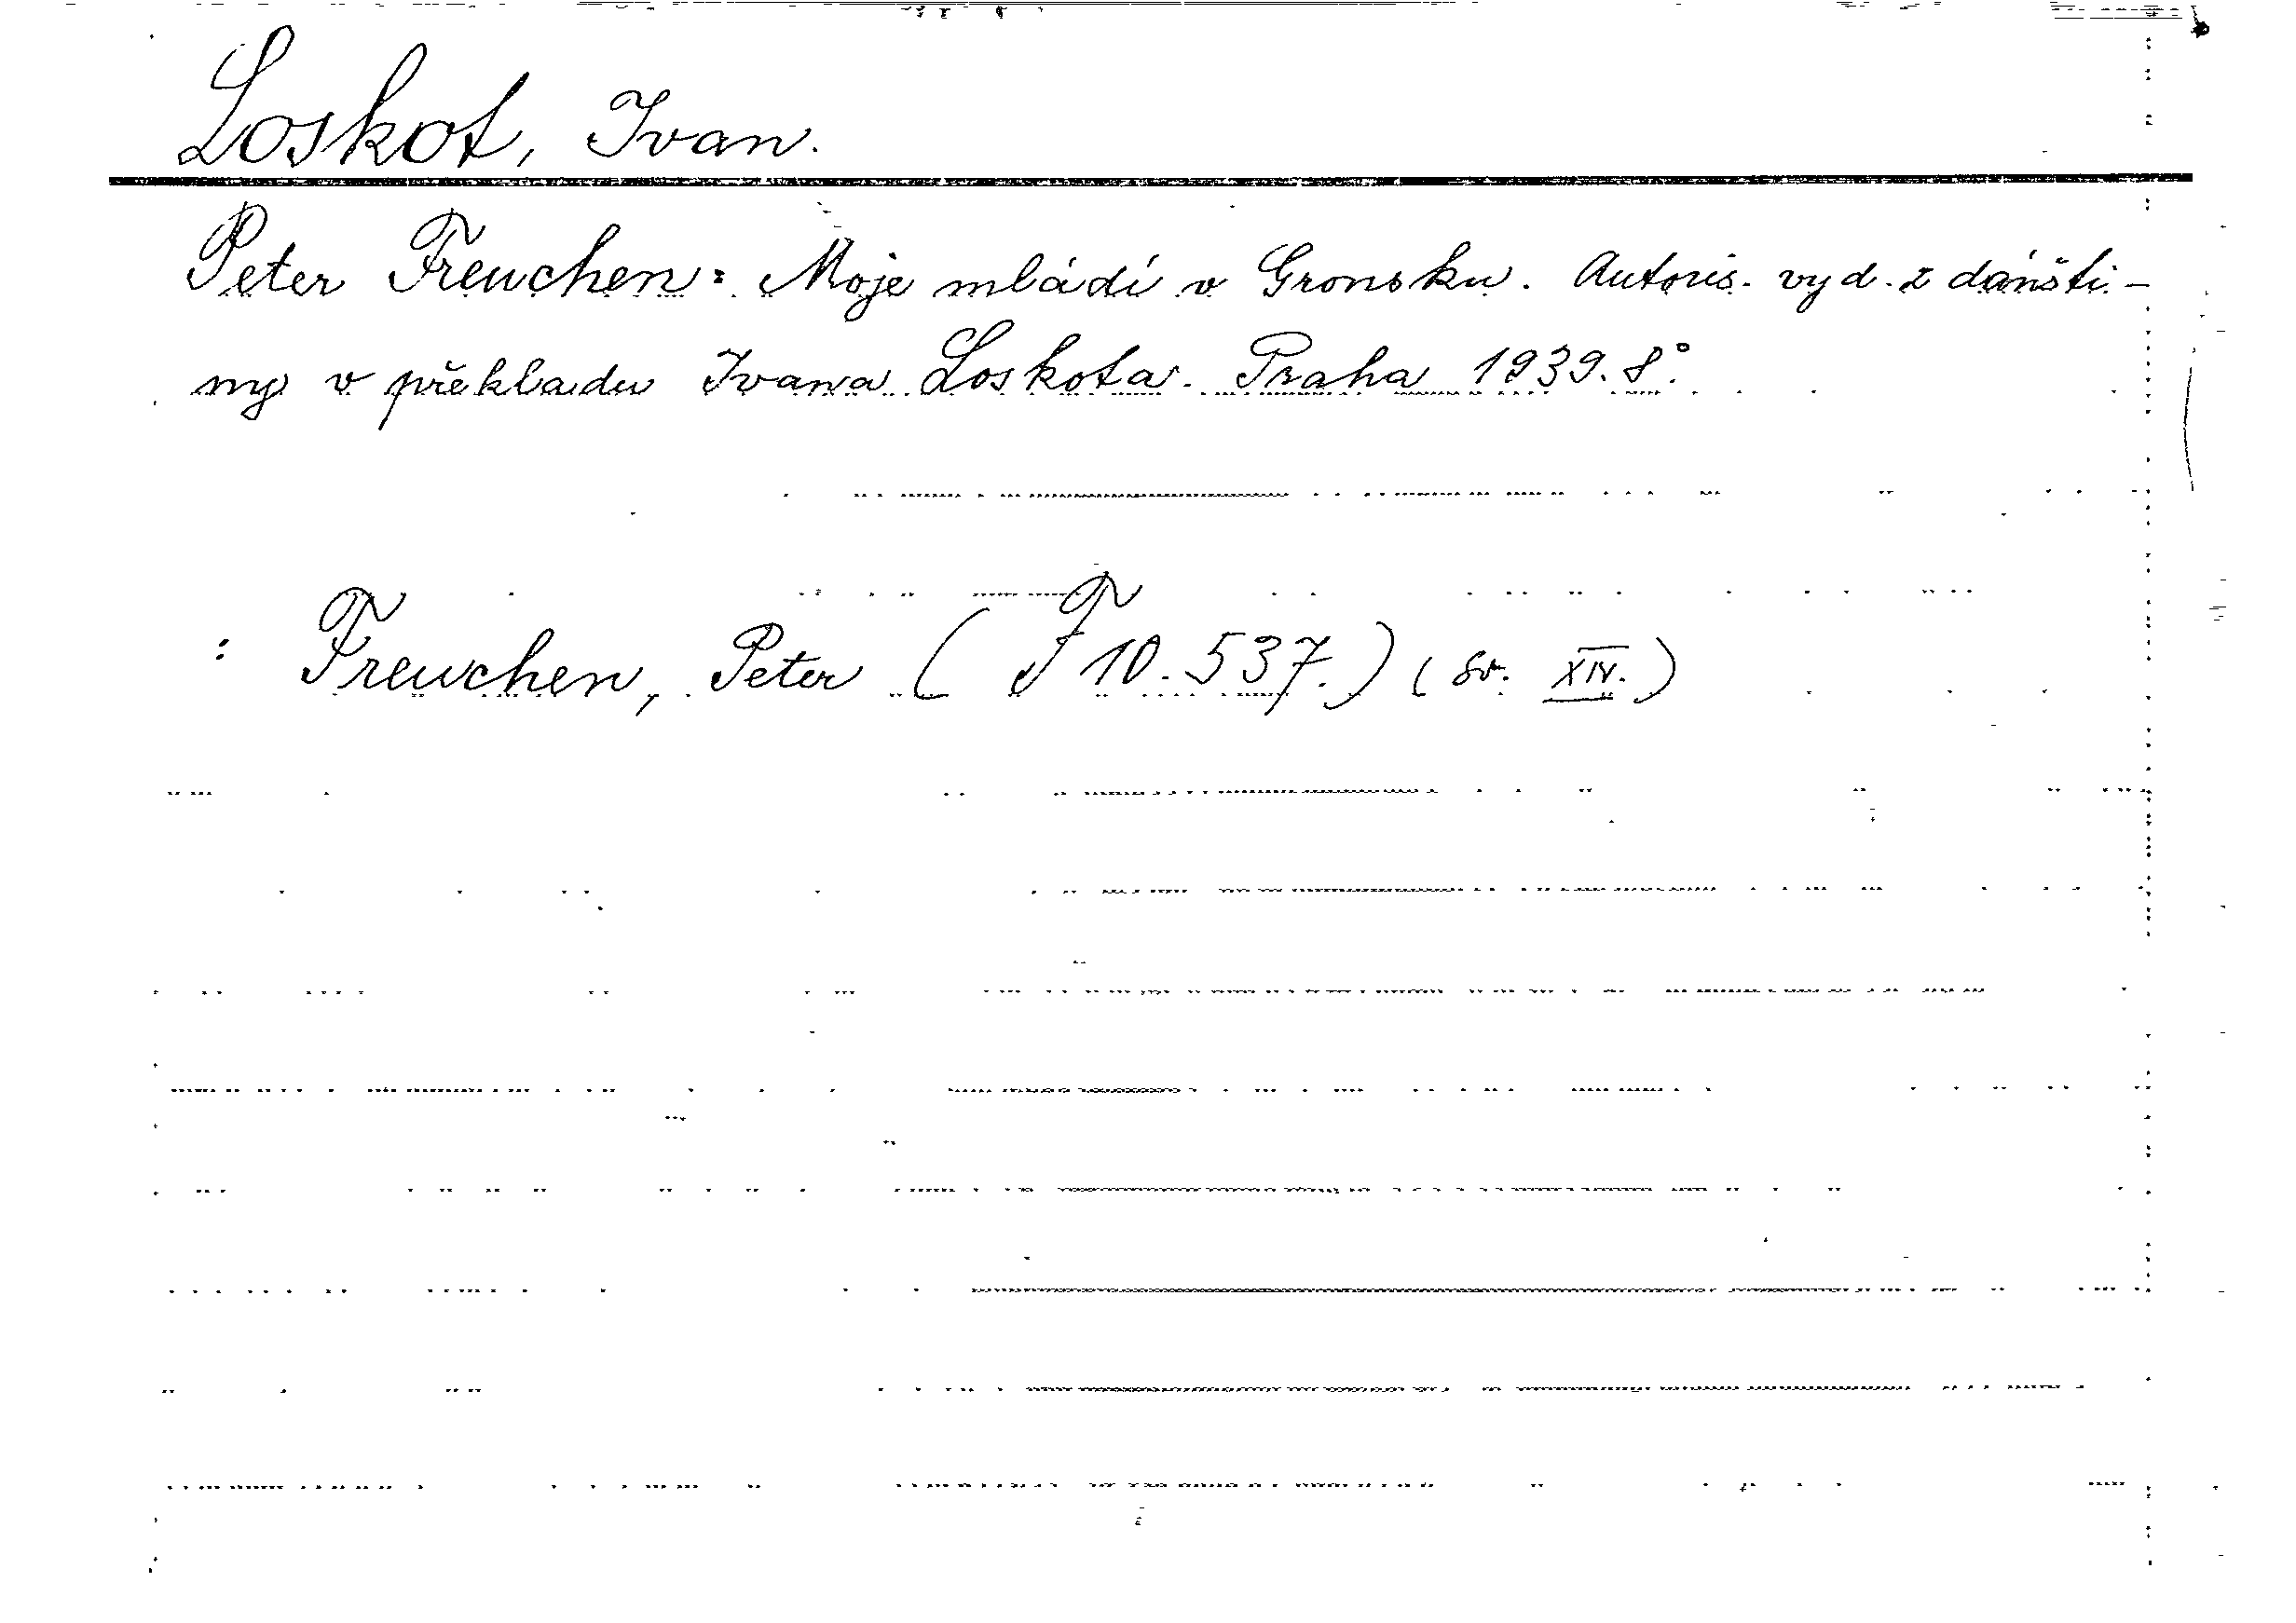 Loskot, Ivan.
Peter Freuchen: Moje mládí v Gronsku. Autoris. vyd. z dánšti-
ny v překladu Ivana Loskota. Praha 1939. 8°.
: Freuchen, Peter (F 10.537.) (sv. XIV.)